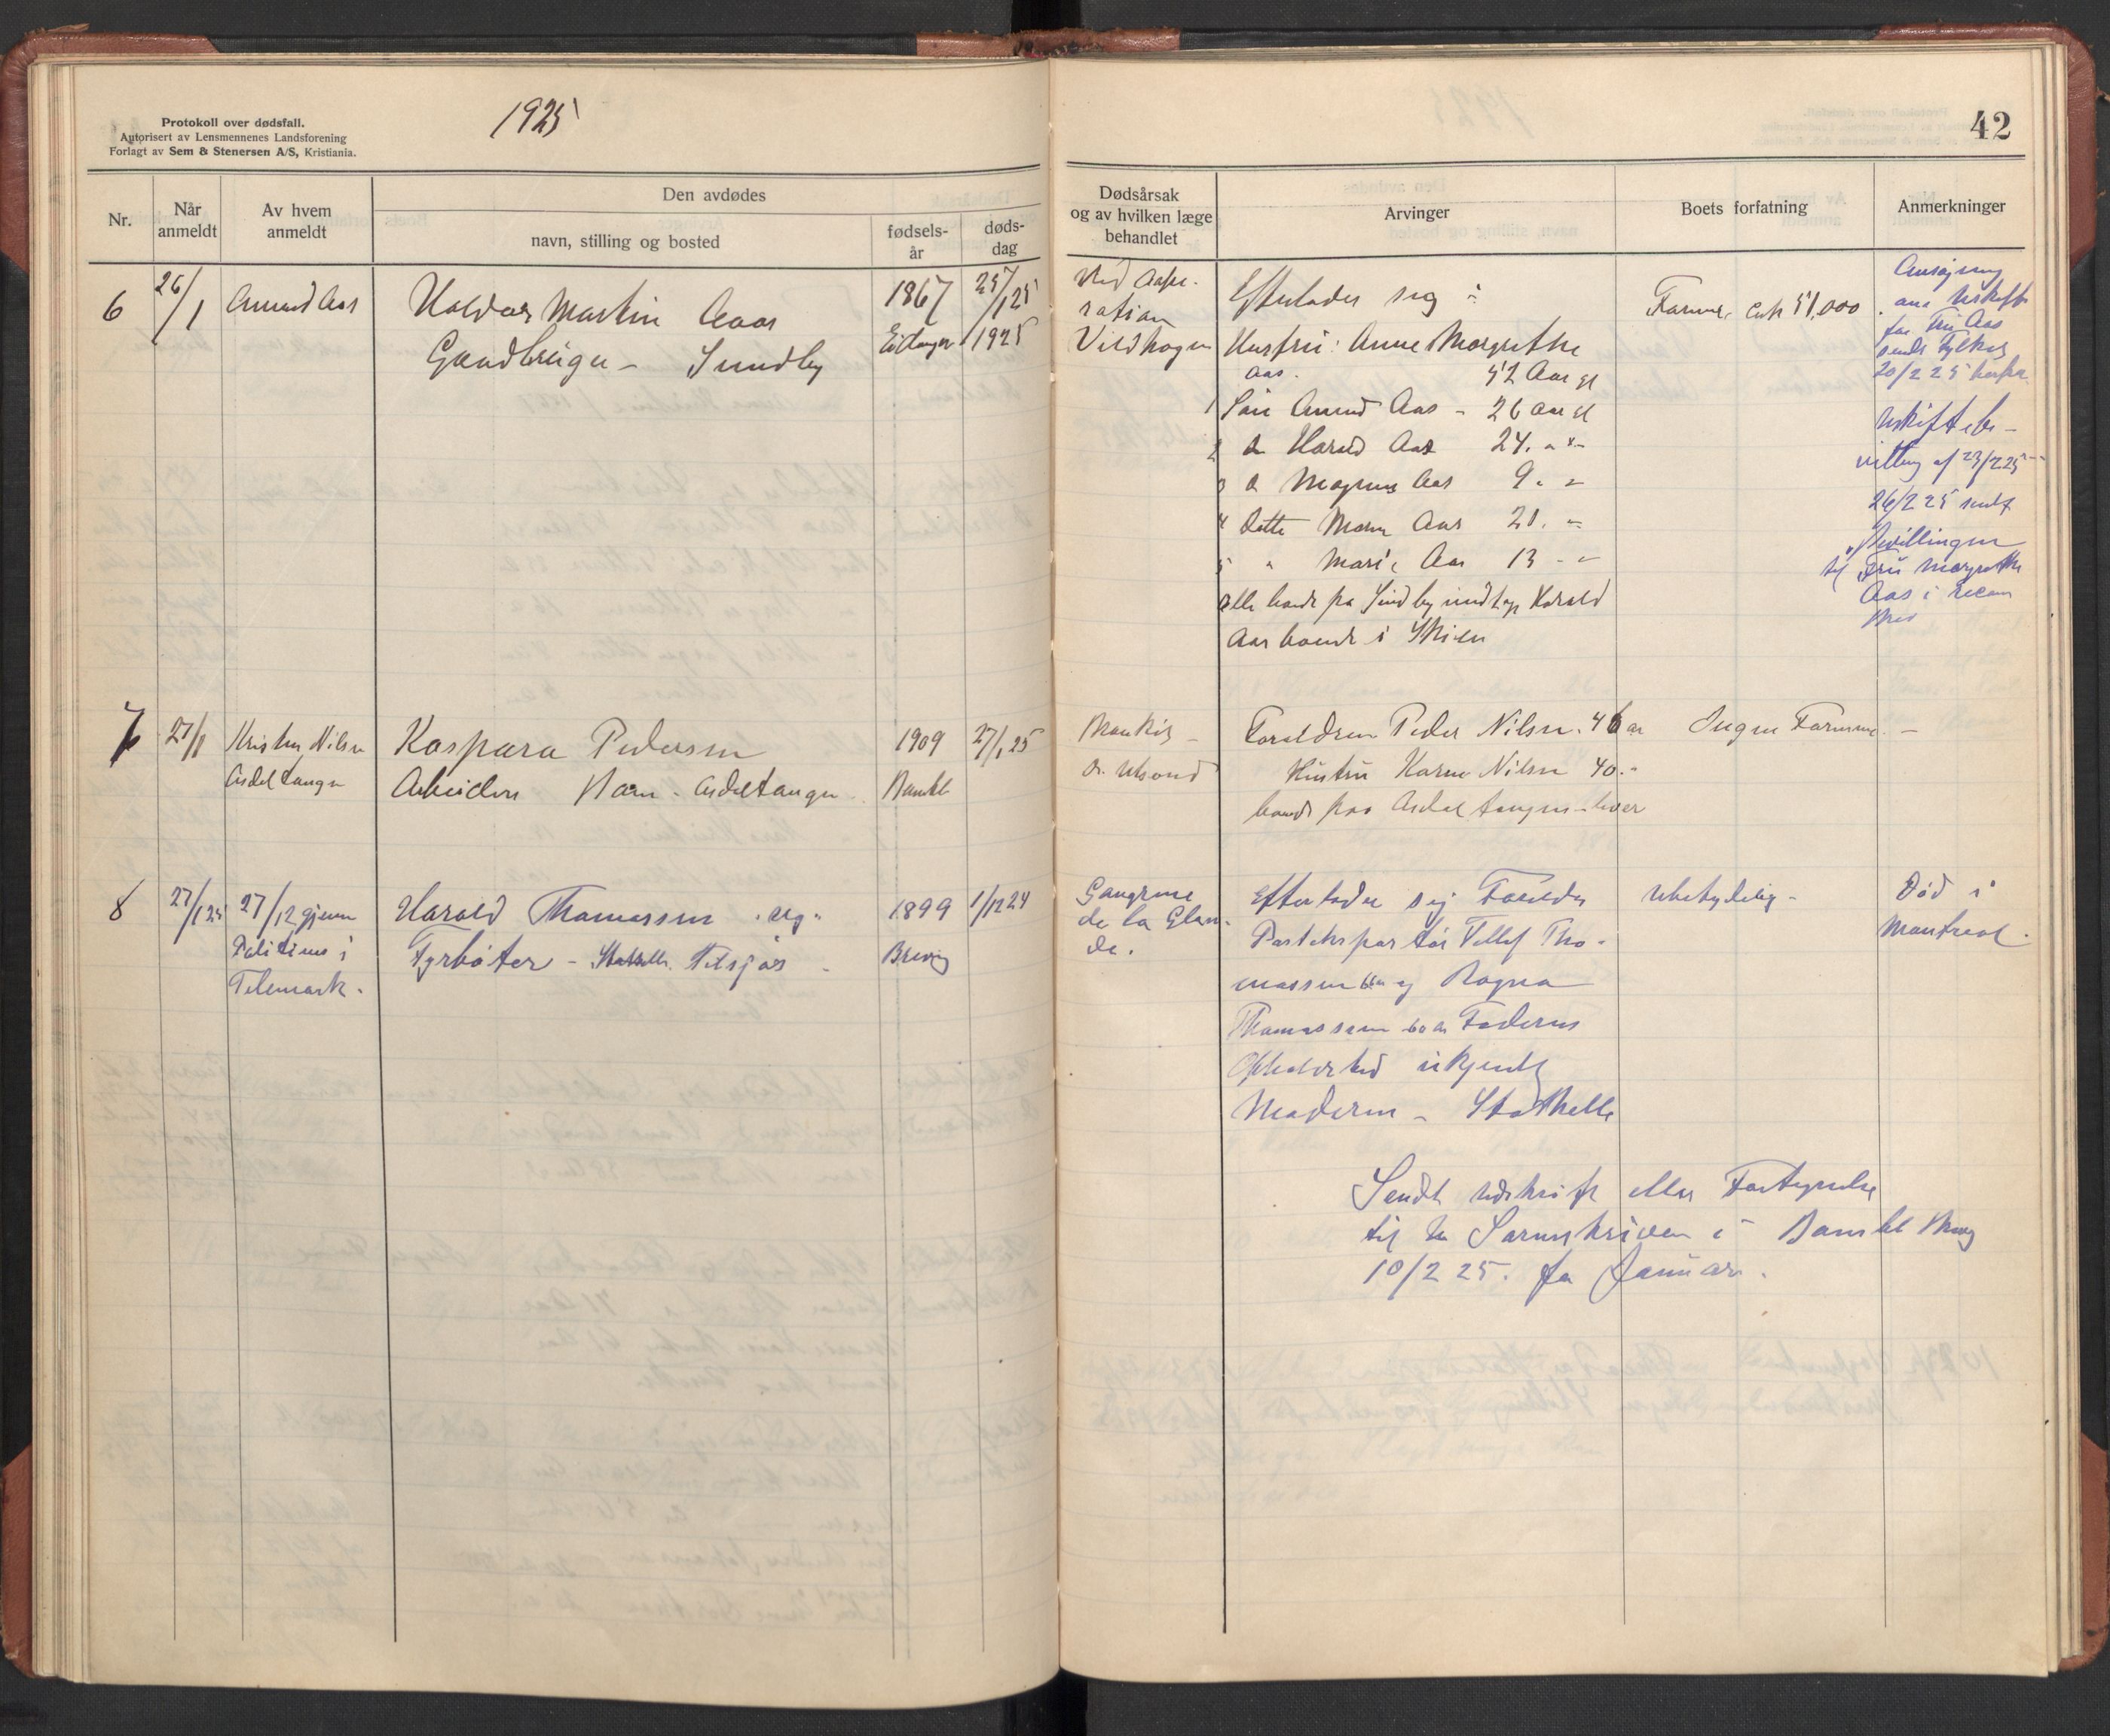 Protokoll over dødsfall.
Autorisert av Lensmennenes Landsforening
Forlagt av Sem & Stenersen A/S, Kristiania.
1925
42
Nr.
Når anmeldt
Av hvem anmeldt
Den avdødes
navn, stilling og bosted
fødsels-år
døds-dag
Dødsårsak og av hvilken læge behandlet
Arvinger
Boets forfatning
Anmerkninger
6
26/1
Amund Aas
Haldor Martin Aaas
Gaardbruger - Sundby
1867
Eidanger
25/1 25
1925
Ved
ration
Vildhagen
Efterlader sig :
Hustru: Anne Margrethe
Aas. 52 Aar gl
1 Søn Amund Aas - 26 Aar gl
2 do Harald Aas 24. " "
3 do Magnus Aas 9. "
4 Datte Aas 21. "
5 " Marie Aas 13 - "
alle boende på Sundby undtagen Harald
Aas boende i Skien
Formue, ca kr 51,000
Ansøgning
om Uskifte
for Fru Aas
sendt Fylket
20/2 25
Uskiftebe-
villing af 23/2 25
26/2 25 sendt
Bevillingen
til Fru Margrethe
Aas i recom
7
27/1
Krister Nilsen
Asdaltangen
Kaspara Pedersen
Arbeiders Barn - Asdaltangen
1909
Bamble
27/1 25
Bronkit -
Dr.
Foreldren Peder Nilsen. 46 aar
Hustru Karen Nilsen 40. "
boende paa Asdaltangen
Ingen Formue. -
8
27/1 25
27/12 gjennem
Politiet i
Telemark.
Harald Thomassen
Fyrbøter - Stathelle.
1899
Brevig
1/12 24
Gangrene
de la Glan-
de.
Efterlader sig Foreldre
Postekspeditør Tellef Tho-
massen og Ragna
Thomassen 60 Aar Faderens
Opholdsted ukjendt
Moderen - Stathelle
ubetydelig -
Død i
Montreal.
Sendt Udskrift eller Fortegnelse
til Sorenskriveren i Bamble
10/2 25. for Januar.